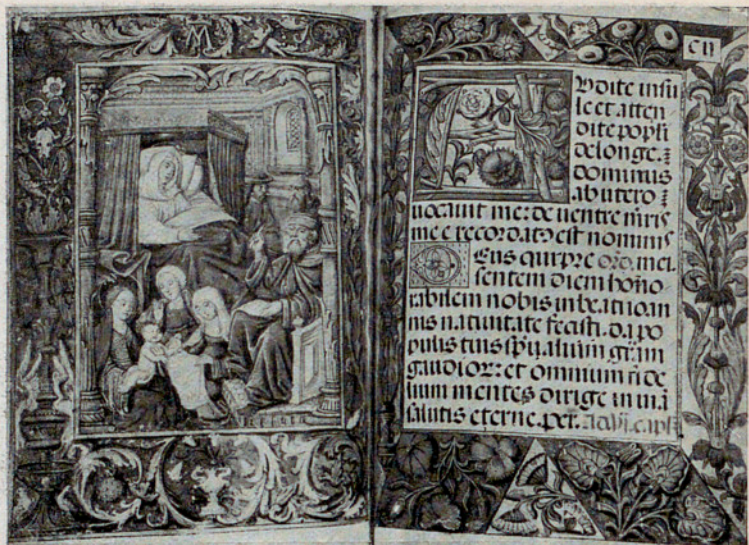 M
CII
Audite insu
le et atten
dite popli
de longe. ⁊
dominus
ab utero ⁊
uocauit me: de uentre mr̃is
mee recordat9 est nominis
Deus qui pre oro. mei.
sentem diem hono
rabilem nobis in beati ioan
nis natiuitate fecisti. da po
pulis tuis spũ.alium gr̃am
gaudior̃: et omnium fide
lium mentes dirige in uiã
salutis eterne. per. capl̃